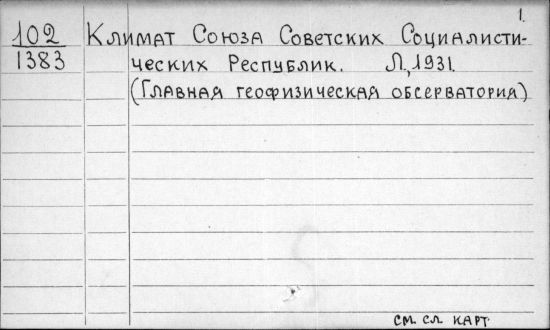 1.
102 Климат Союза Советских Социалисти-
1383 ческих Республик. Л., 1931.
(Главная геофизическая обсерватория)
см. сл. карт.